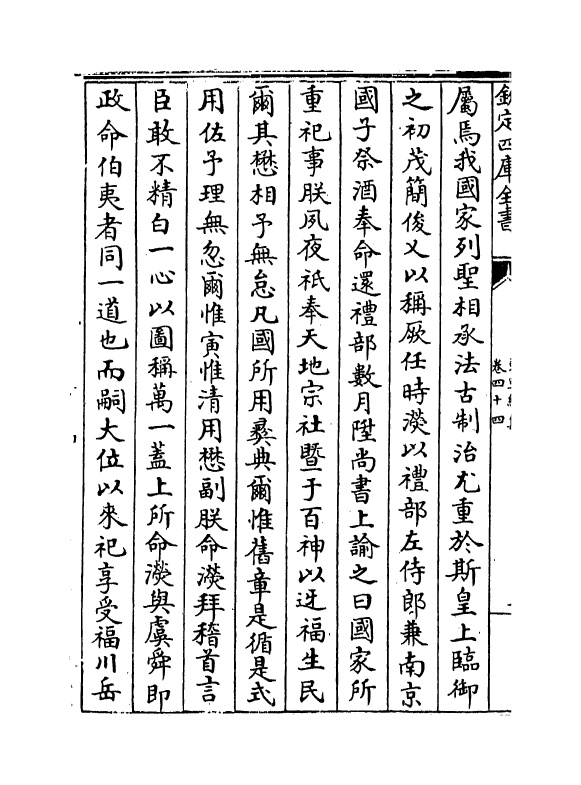 欽定四庫全書
卷四十四
屬焉我國家列聖相承法古制治尤重於斯皇上臨御
之初茂簡俊乂以稱厥任時濙以禮部左侍郎兼南京
國子祭酒奉命還禮部數月陞尚書上諭之曰國家所
重祀事朕夙夜祇奉天地宗社暨于百神以迓福生民
爾其懋相予無怠凡國所用彞典爾惟舊章是循是式
用佐予理無忽爾惟寅惟清用懋副朕命濙拜稽首言
臣敢不精白一心以圖稱萬一蓋上所命濙與虞舜即
政命伯夷者同一道也而嗣大位以來祀享受福川岳